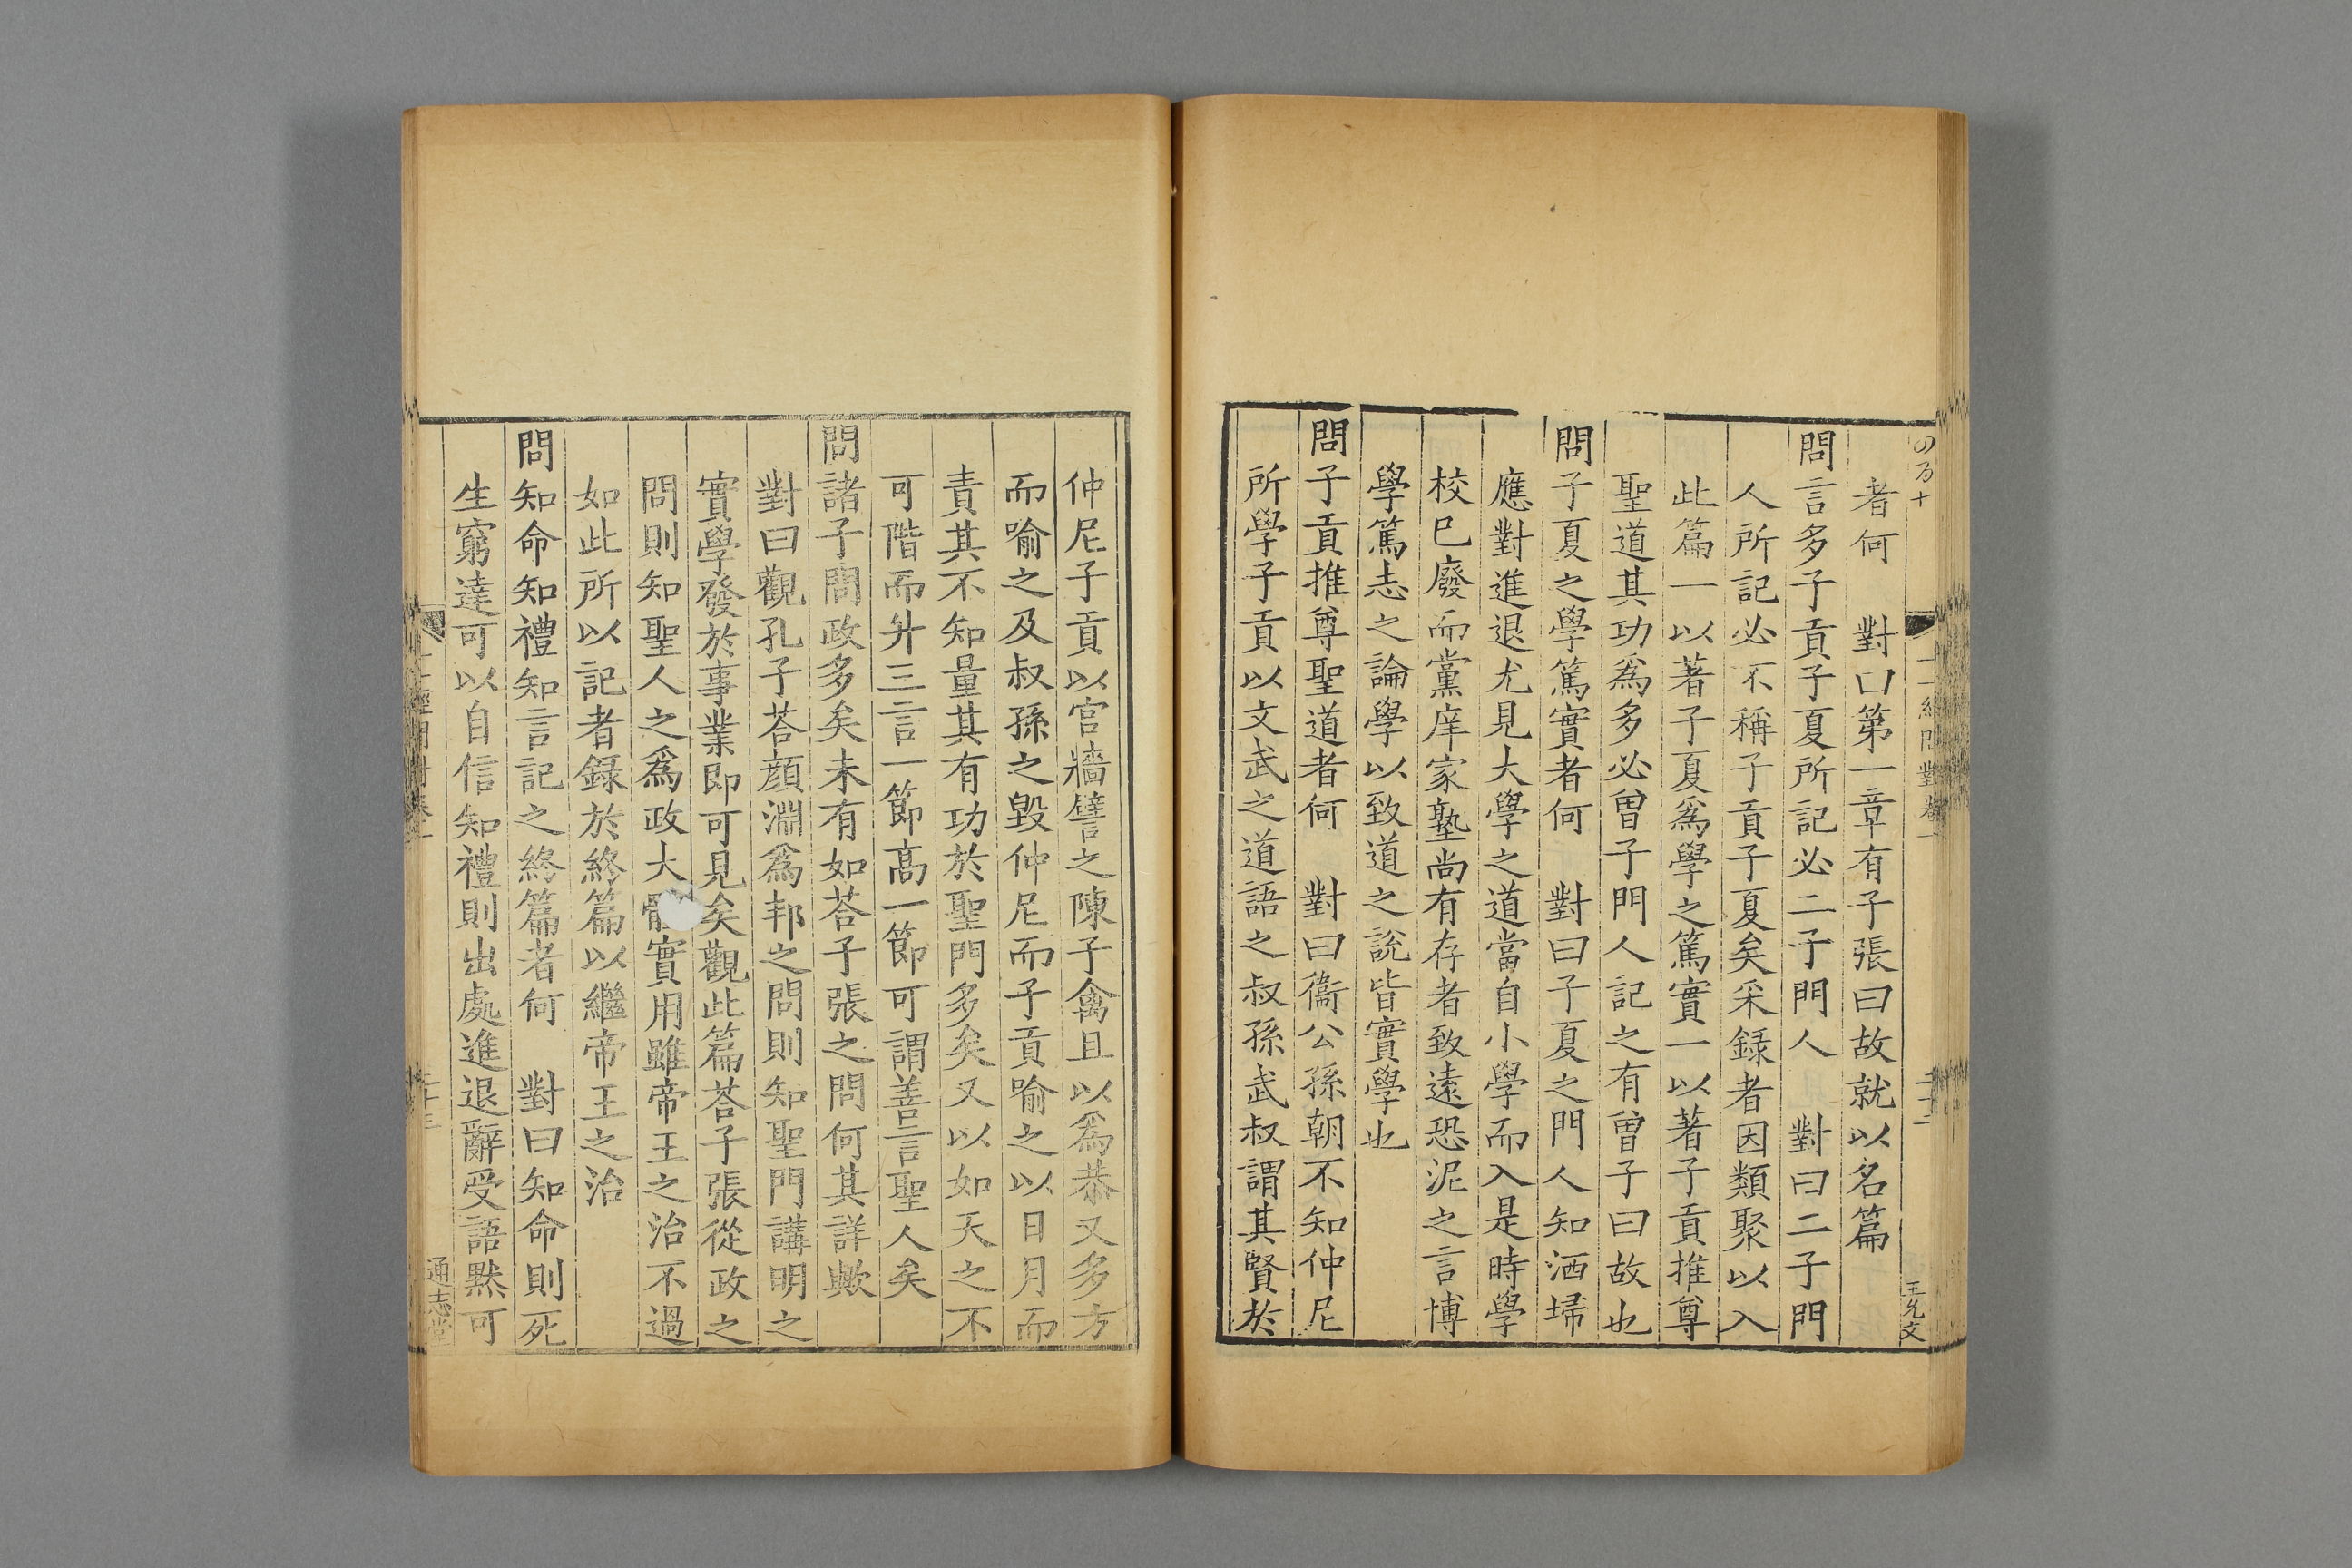 者何　對曰第一章有子張曰故就以名篇
問言多子貢子夏所記必二子門人　對曰二子門
人所記必不稱子貢子夏矣采錄者因類聚以入
此篇一以著子夏爲學之篤實一以著子貢推尊
聖道其功爲多必曾子門人記之有曾子曰故也
問子夏之學篤實者何　對曰子夏之門人知洒埽
應對進退尤見大學之道當自小學而入是時學
校已廢而黨庠家塾尚有存者致遠恐泥之言博
學篤志之論學以致道之說皆實學也
問子貢推尊聖道者何　對曰衞公孫朝不知仲尼
所學子貢以文武之道語之叔孫武叔謂其賢於
王允文
仲尼子貢以宮牆譬之陳子禽且以爲恭又多方
而喻之及叔孫之毀仲尼而子貢喻之以日月而
責其不知量其有功於聖門多矣又以如天之不
可階而升三言一節高一節可謂善言聖人矣
問諸子問政多矣未有如荅子張之問何其詳歟
對曰觀孔子荅顏淵爲邦之問則知聖門講明之
實學發於事業即可見矣觀此篇荅子張從政之
問則知聖人之爲政大體實用雖帝王之治不過
如此所以記者錄於終篇以繼帝王之治
問知命知禮知言記之終篇者何　對曰知命則死
生窮達可以自信知禮則出處進退辭受語默可
通志堂